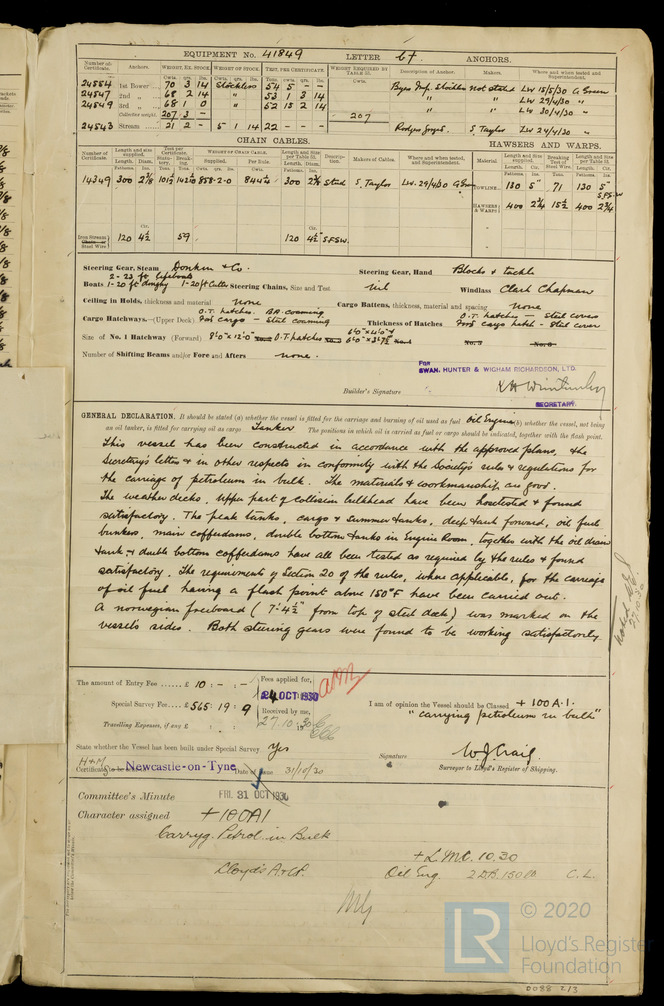 EQUIPMENT No. 41849 LETTER b† ANCHORS.
Number of Certificate. Anchors. WEIGHT, EX. STOCK. WEIGHT OF STOCK. TEST, PER CERTIFICATE. WEIGHT REQUIRED BY TABLE 31. Description of Anchor. Makers. Where and when tested and Superintendent.
Cwts. qrs. lbs. Cwts. qrs. lbs. Tons. cwts. qrs. lbs. Cwts.
24554 1st Bower 70 3 14 Stockless 54 5 - - Byers Imp. Stockless Not stated LW 15/5/30 G Green
24547 2nd " 68 2 14 " 53 1 3 14 " " LW 29/4/30 "
24549 3rd " 68 1 0 " 52 15 2 14 " " LW 30/4/30 "
Collective weight 207 3 - 207
24543 Stream 21 2 - 5 1 14 22 - - - Rodgers forged. S. Taylor LW 24/4/30 "
CHAIN CABLES. HAWSERS AND WARPS.
Number of Certificate. Length and size supplied. Test per Certificate. WEIGHT OF CHAIN CABLE. Length and Size per Table 31. Description. Makers of Cables. Where and when tested, and Superintendent. Material Length and Size supplied. Breaking Test of Steel Wire. Length and Size per Table 31.
Length. Diam. Statutory. Breaking. Supplied. Per Rule. Length. Diam. Length. Cir. Length. Cir.
14349 300 2 5/8 858-2-0 300 2 5/8 Stud S. Taylor LW. 29/4/30 G Green TOWLINE 130 5" 71 130 5"
S.F.S.W
HAWSERS & WARPS 400 2 3/4 15 1/2 400 2 3/4
Iron Stream Chain or Steel Wire 120 4 1/2 59 120 4 1/2" S.F.S.W.
Steering Gear, Steam Donkin & Co. Steering Gear, Hand Blocks & tackle
2-28 ft lifeboats
Boats 1-20 ft dinghy 1-20 ft Cutter Steering Chains, Size and Test nil Windlass Clark Chapman
Ceiling in Holds, thickness and material none Cargo Battens, thickness, material and spacing none
O.T. hatches. B.A. coaming O.T. hatches – steel covers
Cargo Hatchways.—(Upper Deck) Ford cargo – Steel coaming Thickness of Hatches Ford cargo hatch – Steel cover
Size of No. 1 Hatchway (Forward) 8'0" x 12'0" No. 2 O.T. hatches No. 3 No. 4 No. 5 No. 6
Number of Shifting Beams and/or Fore and Afters none.
For
SWAN, HUNTER & WIGHAM RICHARDSON, LTD.
Builder's Signature
SECRETARY.
GENERAL DECLARATION. It should be stated (a) whether the vessel is fitted for the carriage and burning of oil used as fuel Oil Engine (b) whether the vessel, not being
an oil tanker, is fitted for carrying oil as cargo Tanker The positions in which oil is carried as fuel or cargo should be indicated, together with the flash point.
This vessel has been constructed in accordance with the approved plans, the
Secretary's letters & in other respects in conformity with the Society's rules & regulations for
the carriage of petroleum in bulk. The materials & workmanship are good.
The weather decks, upper part of collision bulkhead have been hosetested & found
satisfactory. The peak tanks, cargo & summer tanks, deep tank forward, oil fuel
bunkers, main cofferdams, double bottom tanks in Engine Room, together with the oil drain
tank & double bottom cofferdams have all been tested as required by the rules & found
satisfactory. The requirements of Section 20 of the rules, where applicable, for the carriage
of oil fuel having a flash point above 150°F have been carried out.
A norwegian freeboard (7'-4½" from top of steel deck) was marked on the
vessel's sides. Both steering gears were found to be working satisfactorily.
The amount of Entry Fee ...... £ 10 : - : - Fees applied for,
24 OCT 1930
Special Survey Fee .... £ 565 : 19 : 9 Received by me,
Travelling Expenses, if any £ : : 27.10.30
I am of opinion the Vessel should be Classed +100A.1.
"carrying petroleum in bulk"
State whether the Vessel has been built under Special Survey Yes
Signature W.J. Craig.
Surveyor to Lloyd's Register of Shipping.
Newcastle-on-Tyne Date of issue 31/10/30
Committee's Minute FRI. 31 OCT 1930
Character assigned +100A1
Carryg. Petrol. in Bulk
+ L.M.C. 10.30
Lloyd's A&CP. Oil Eng. 2 D.B. 150 lb C.L.
LR
© 2020
Lloyd's Register
Foundation
0088 2/3